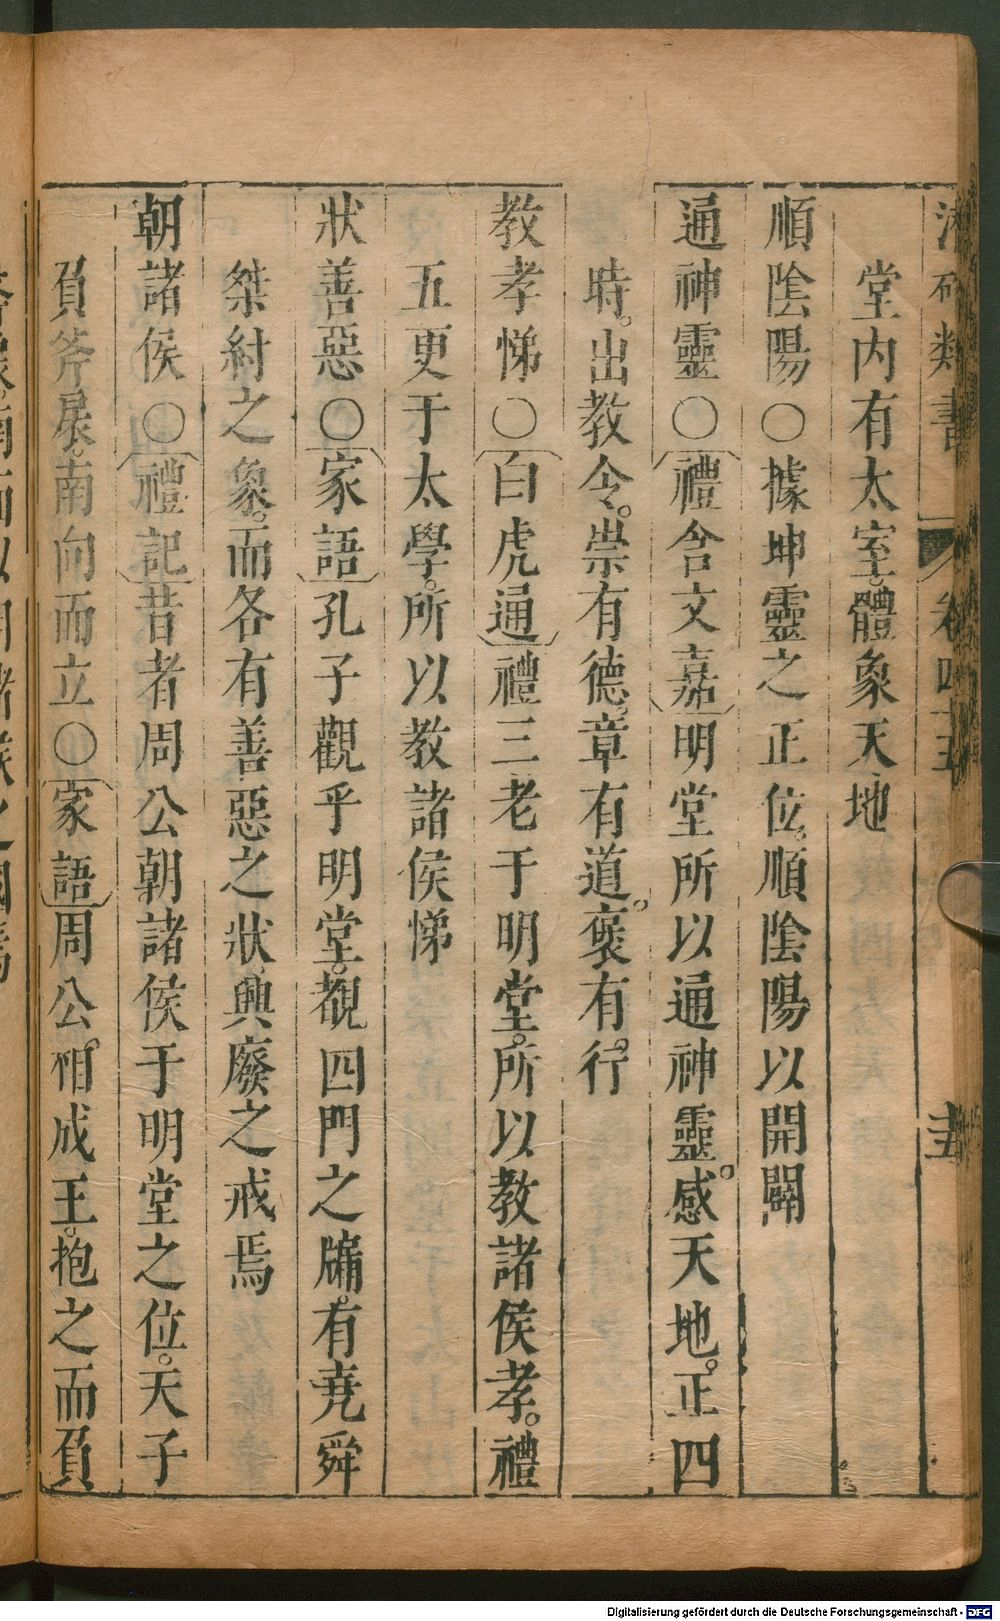 類書 卷四十五
堂内有太室。體象天地
順陰陽〇據坤靈之正位。順陰陽以開闢
通神靈〇禮含文嘉明堂所以通神靈。感天地。正四
時。出教令。崇有德。章有道。褒有。行
教孝悌〇白虎通禮三老于明堂。所以教諸侯孝。禮
五更于太學。所以教諸侯悌
狀善惡〇家語孔子觀乎明堂。覩四門之牖。有堯舜
桀紂之象。而各有善惡之狀興廢之戒焉
朝諸侯〇禮記昔者周公朝諸侯于明堂之位。天子
負斧扆。南向而立〇家語周公。相成王。抱之而負
Digitalisierung gefördert durch die Deutsche Forschungsgemeinschaft - DFG